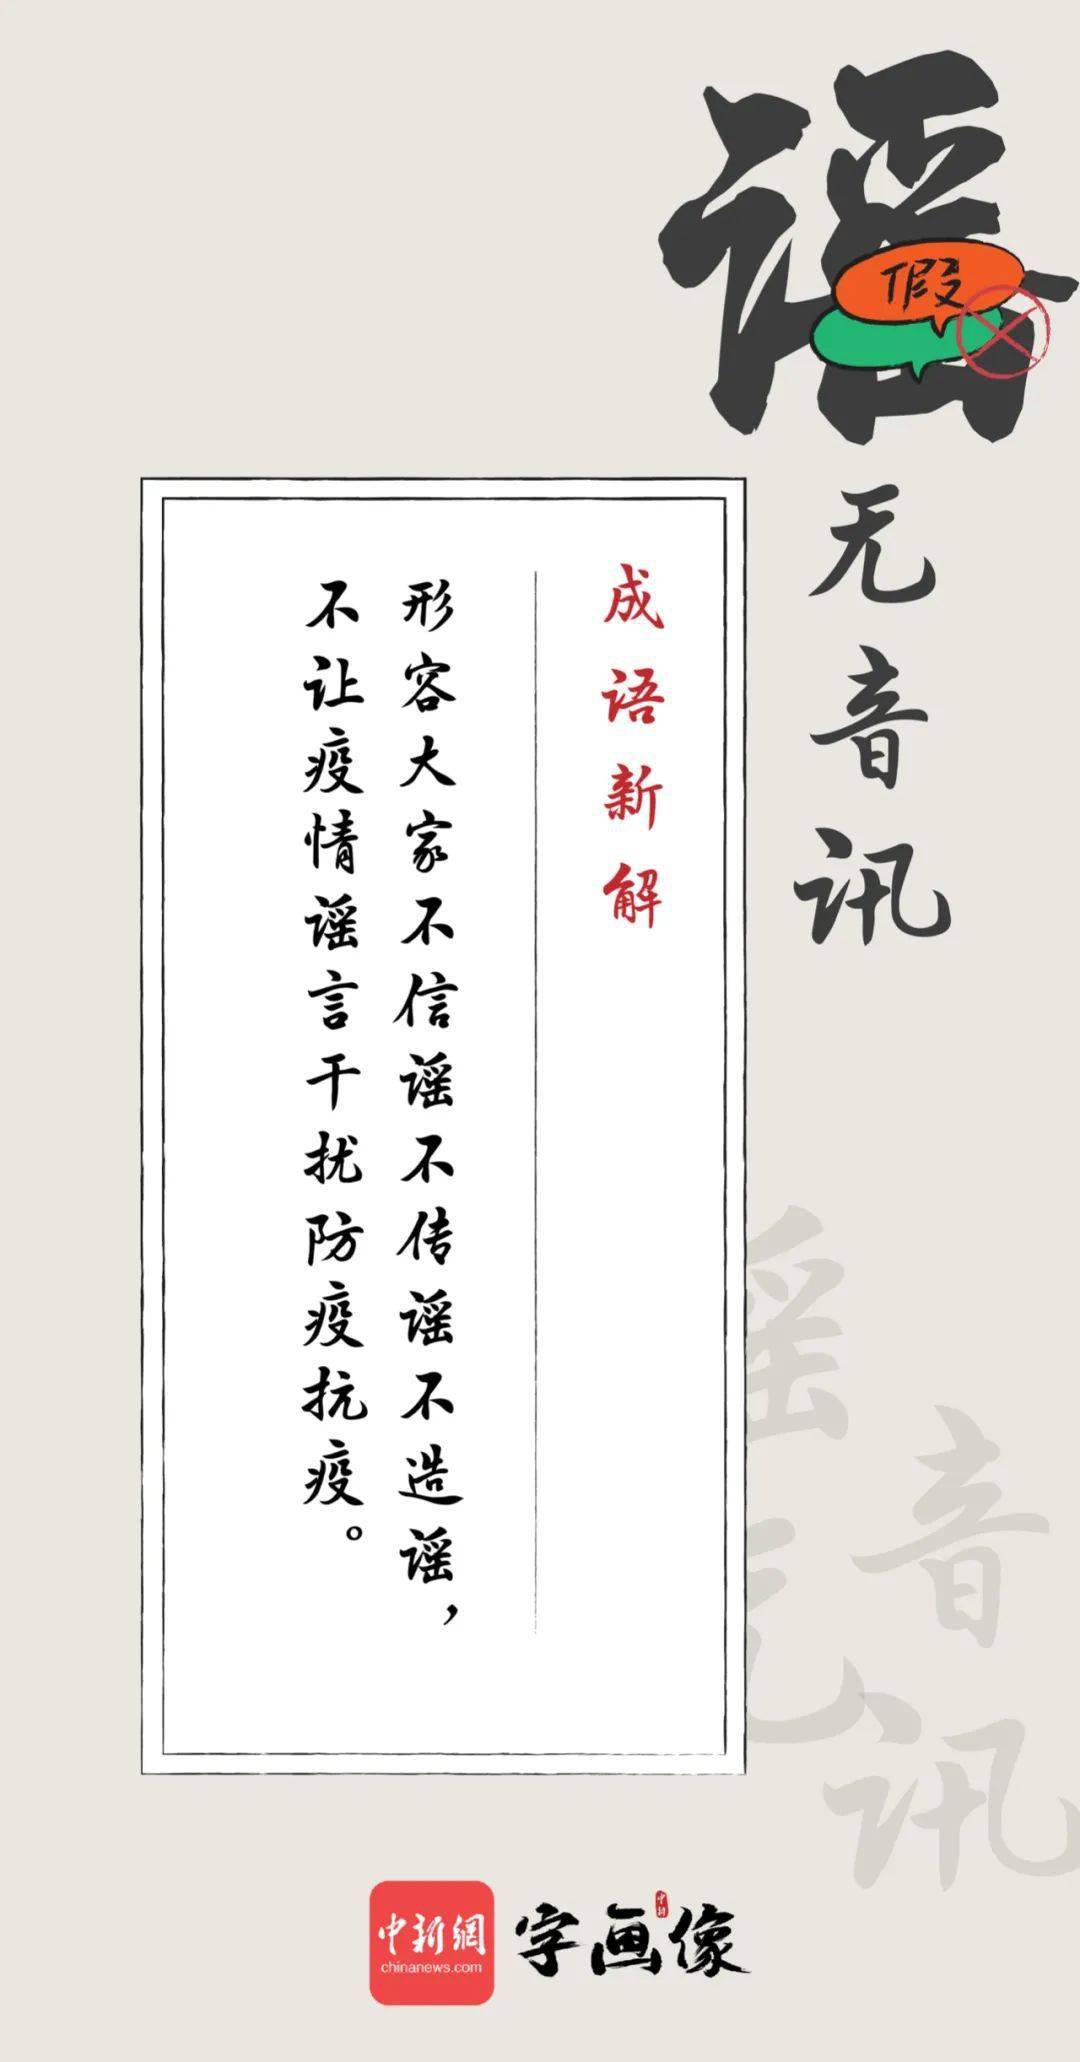 谣
假
无音讯
成语新解
形容大家不信谣不传谣不造谣，
不让疫情谣言干扰防疫抗疫。
谣
无
音
讯
中新網
chinanews.com
字画像
中新